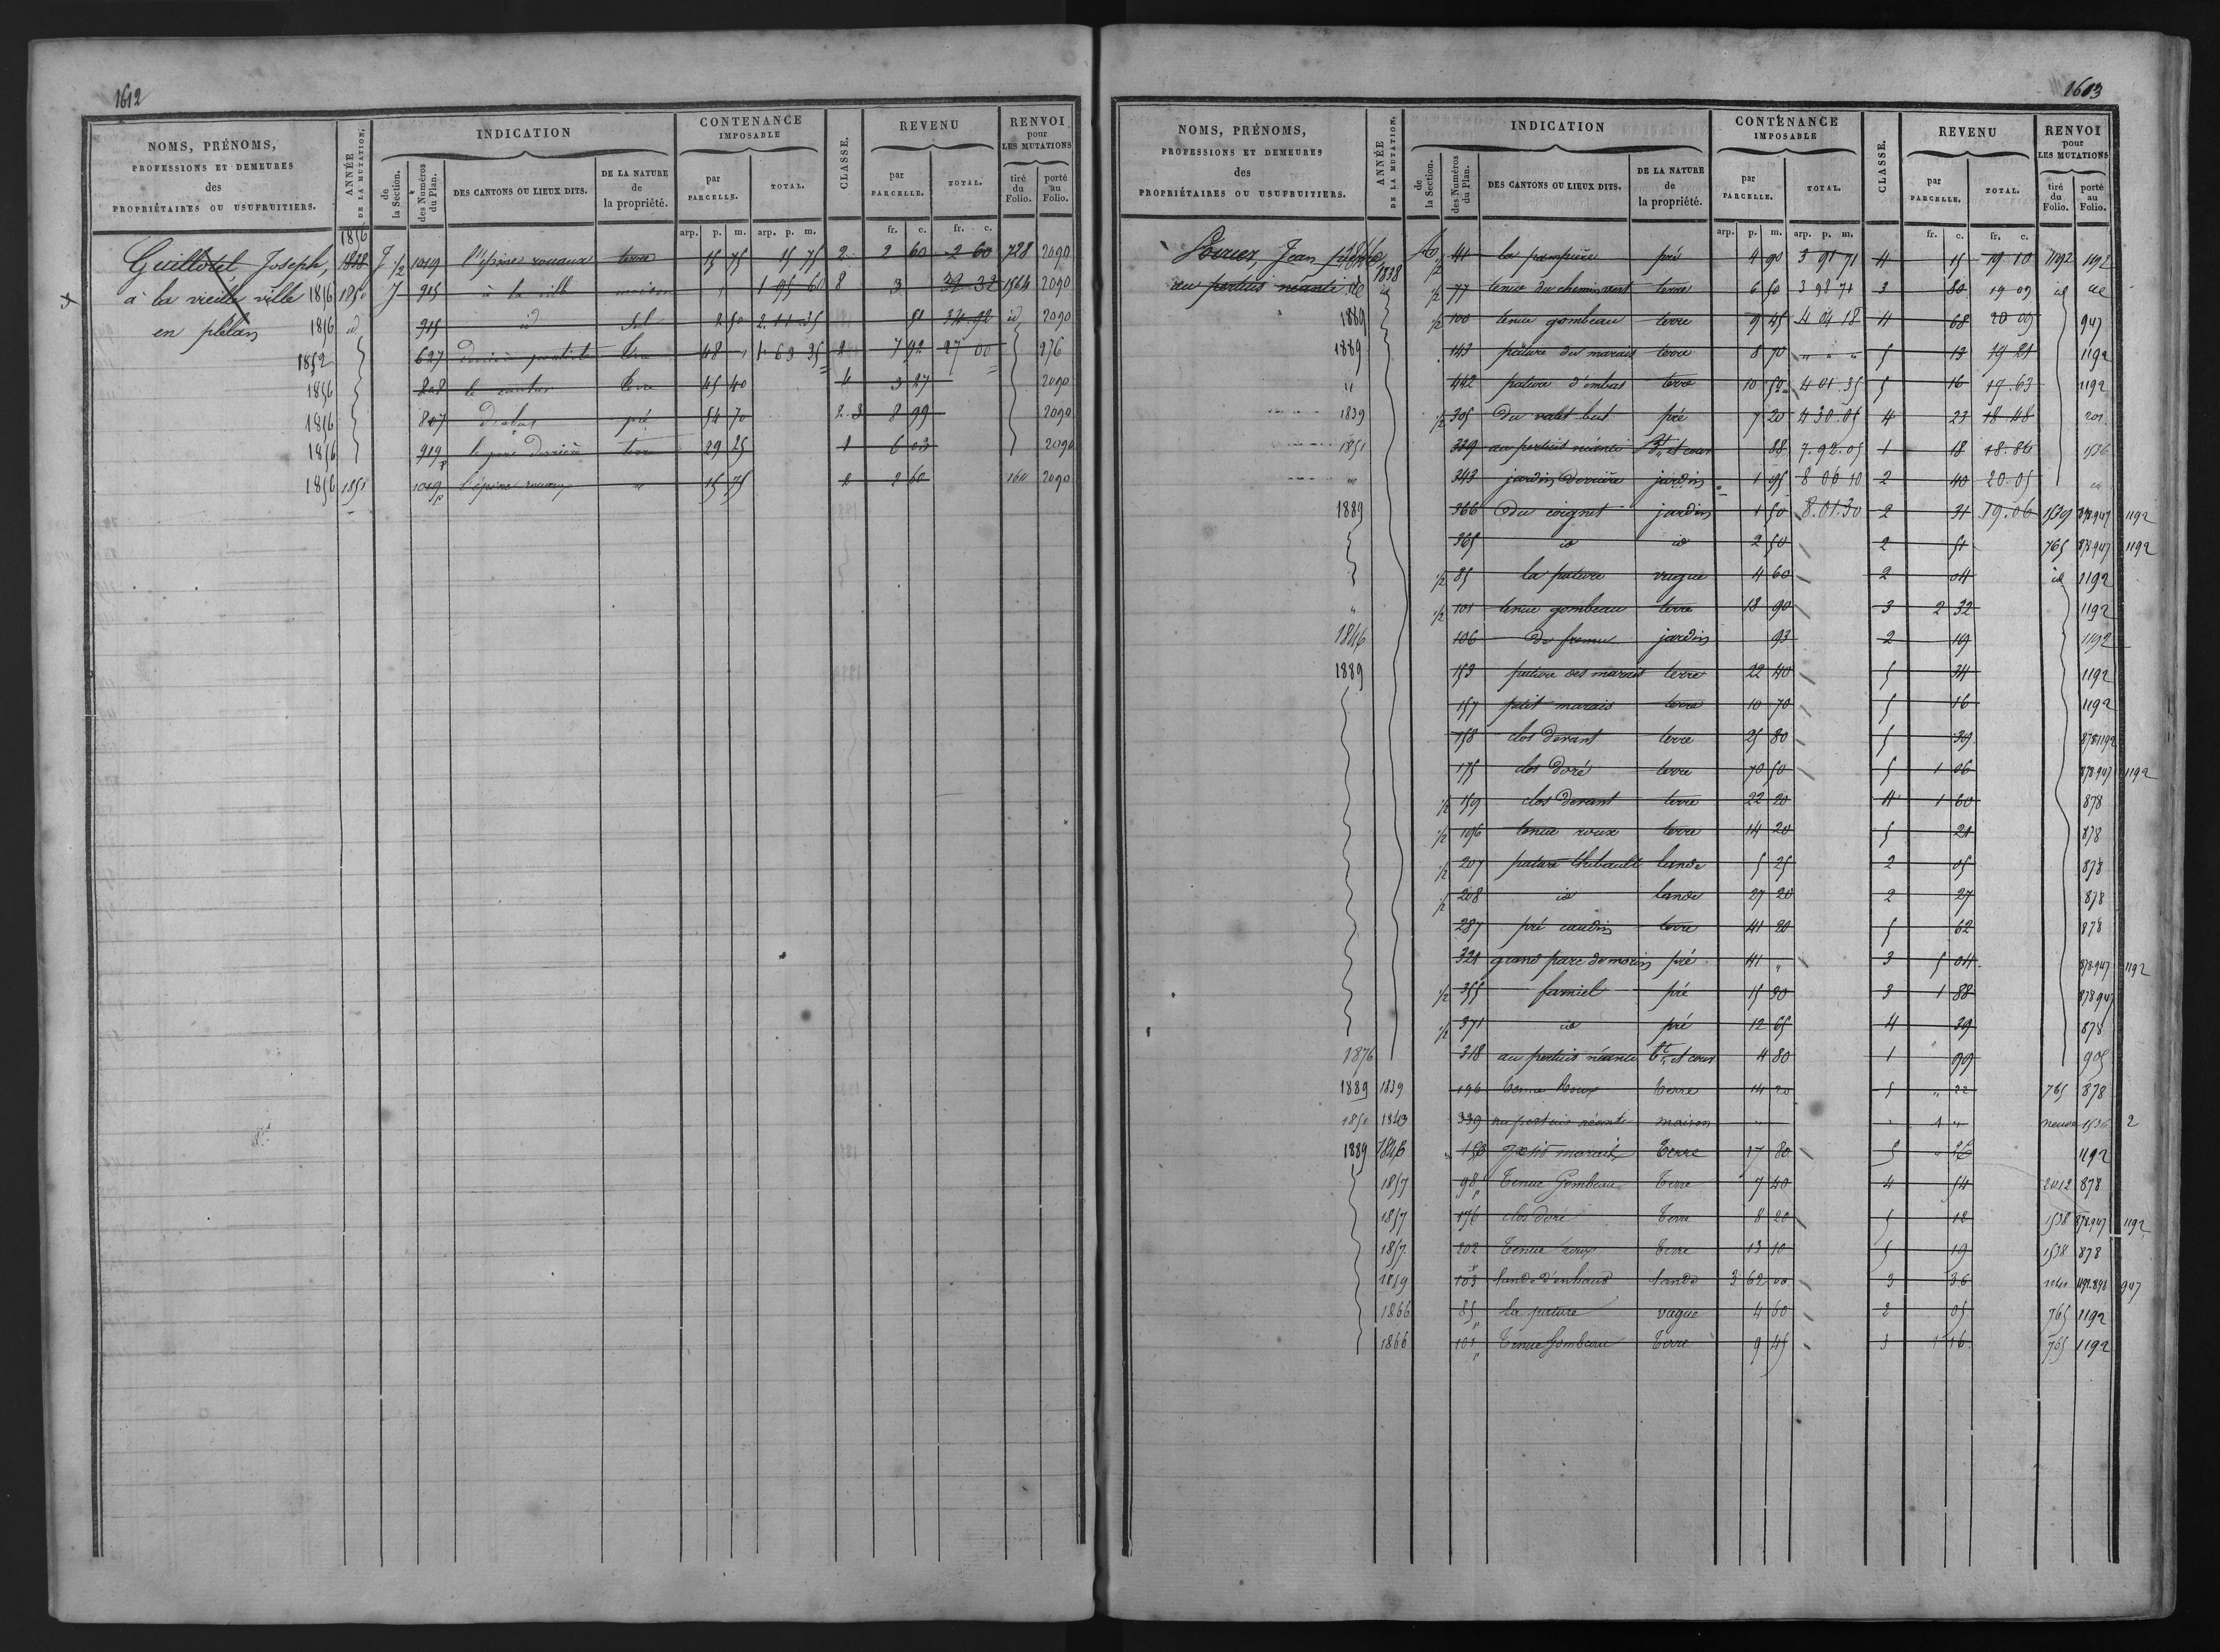 1612
NOMS, PRÉNOMS, PROFESSIONS ET DEMEURES des PROPRIÉTAIRES OU USUFRUITIERS.
ANNÉE DE LA MUTATION.
INDICATION
de la Section.
des Numéros du Plan.
DES CANTONS OU LIEUX DITS.
DE LA NATURE de la propriété.
CONTENANCE IMPOSABLE
par PARCELLE.
TOTAL.
CLASSE.
REVENU
par PARCELLE.
TOTAL.
RENVOI pour LES MUTATIONS
tiré du Folio.
porté au Folio.
arp. p. m. arp. p. m. fr. c. fr. c.
1856
Guillotel Joseph, 1828 J 1/2 1019 l'épine rouaux terre 15 75 15 75 2 2 60 2 60 728 2090
à la vieille ville 1856 1850 J 915 à la ville maison 1 95 60 8 3 32 32 1564 2090
en plélan 1856 id 915 id sol 2 50 2.11.35 51 2090
1852 627 terre 48 1 63 35 2 7 92 27 00 276
1856 828 terre 45 40 4 3 27 2090
1856 807 pré 54 70 2.3 8 99 2090
1856 919 le parc derrière terre 29 25 1 6 03 2090
1856 1851 1019 p l'épine rouaux " 15 75 2 2 60 1611 2090
1613
NOMS, PRÉNOMS, PROFESSIONS ET DEMEURES des PROPRIÉTAIRES OU USUFRUITIERS.
ANNÉE DE LA MUTATION.
INDICATION
de la Section.
des Numéros du Plan.
DES CANTONS OU LIEUX DITS.
DE LA NATURE de la propriété.
CONTENANCE IMPOSABLE
par PARCELLE.
TOTAL.
CLASSE.
REVENU
par PARCELLE.
TOTAL.
RENVOI pour LES MUTATIONS
tiré du Folio.
porté au Folio.
arp. p. m. arp. p. m. fr. c. fr. c.
Jean 1/2 41 pré 4 90 3 91 71 4 15 19 10 1192 1192
au pertuis néanti id 1838 1/2 77 tenue du chemin vert terre 6 50 3 98 71 3 80 19 09 id id
1889 1/2 100 tenue gombeau terre 9 45 4 04 18 4 68 20 09 947
1889 143 pâture du marais terre 8 70 " " " 5 13 19 21 1192
" 442 pature d'embas terre 10 50 4 01 35 5 16 19.63 1192
1839 1/2 305 pré 7 20 4 30.05 4 23 18 48 201
1851 339 au pertuis néanti Bt. et cour 88 7.92.05 1 18 18.86 1536
" 343 jardin derrière jardin 1 95 8 06 10 2 40 20.05 id
1889 366 du coignet jardin 1 50 8.01.30 2 31 19.06 1539 878.947 1192
365 id id 2 50 2 51 765 878 947 1192
1/2 85 la pature vague 4 60 2 04 id 1192
" 1/2 101 tenue gombeau terre 18 90 3 2 32 1192
1846 106 jardin 93 2 19 1192
1889 153 pature des marais terre 22 40 5 34 1192
157 petit marais terre 10 70 5 16 1192
158 clos devant terre 25 80 5 39 878 1192
175 clos doré terre 70 50 5 1 06 878.947 1192
1/2 159 clos devant terre 22 20 4 1 60 878
1/2 196 tenue roux terre 14 20 5 21 878
1/2 207 pature thébault lande 5 25 2 05 878
1/2 208 id lande 27 20 2 27 878
287 pré caudin terre 41 20 5 62 878
321 grand parc de morin pré 41 " 3 5 04 878.947 1192
1/2 355 famiel pré 15 30 3 1 88 878 947
1/2 371 id pré 12 65 4 39 878
1876 318 au pertuis néanti Bt. et cour 4 80 1 99 905
1889 1839 196 tenue Roux terre 14 20 5 " 22 765 878
1851 1843 339 au pertuis néanti maison " " 4 " neuve 1536 2
1889 1846 150 Petit marais terre 17 80 5 26 1192
1857 98 p Tenue Gombeau Terre 7 40 4 54 2012 878
1857 176 clos doré Terre 8 20 5 12 1538 878.947 1192
1857 202 Tenue roux Terre 13 10 5 19 1538 878
1859 103 p lande d'enhaut Lande 3 62 00 3 36 1192.878 947
1866 85 p la pature vague 4 60 2 05 765 1192
1866 101 p Tenue Gombeau Terre 9 45 3 1 16 765 1192